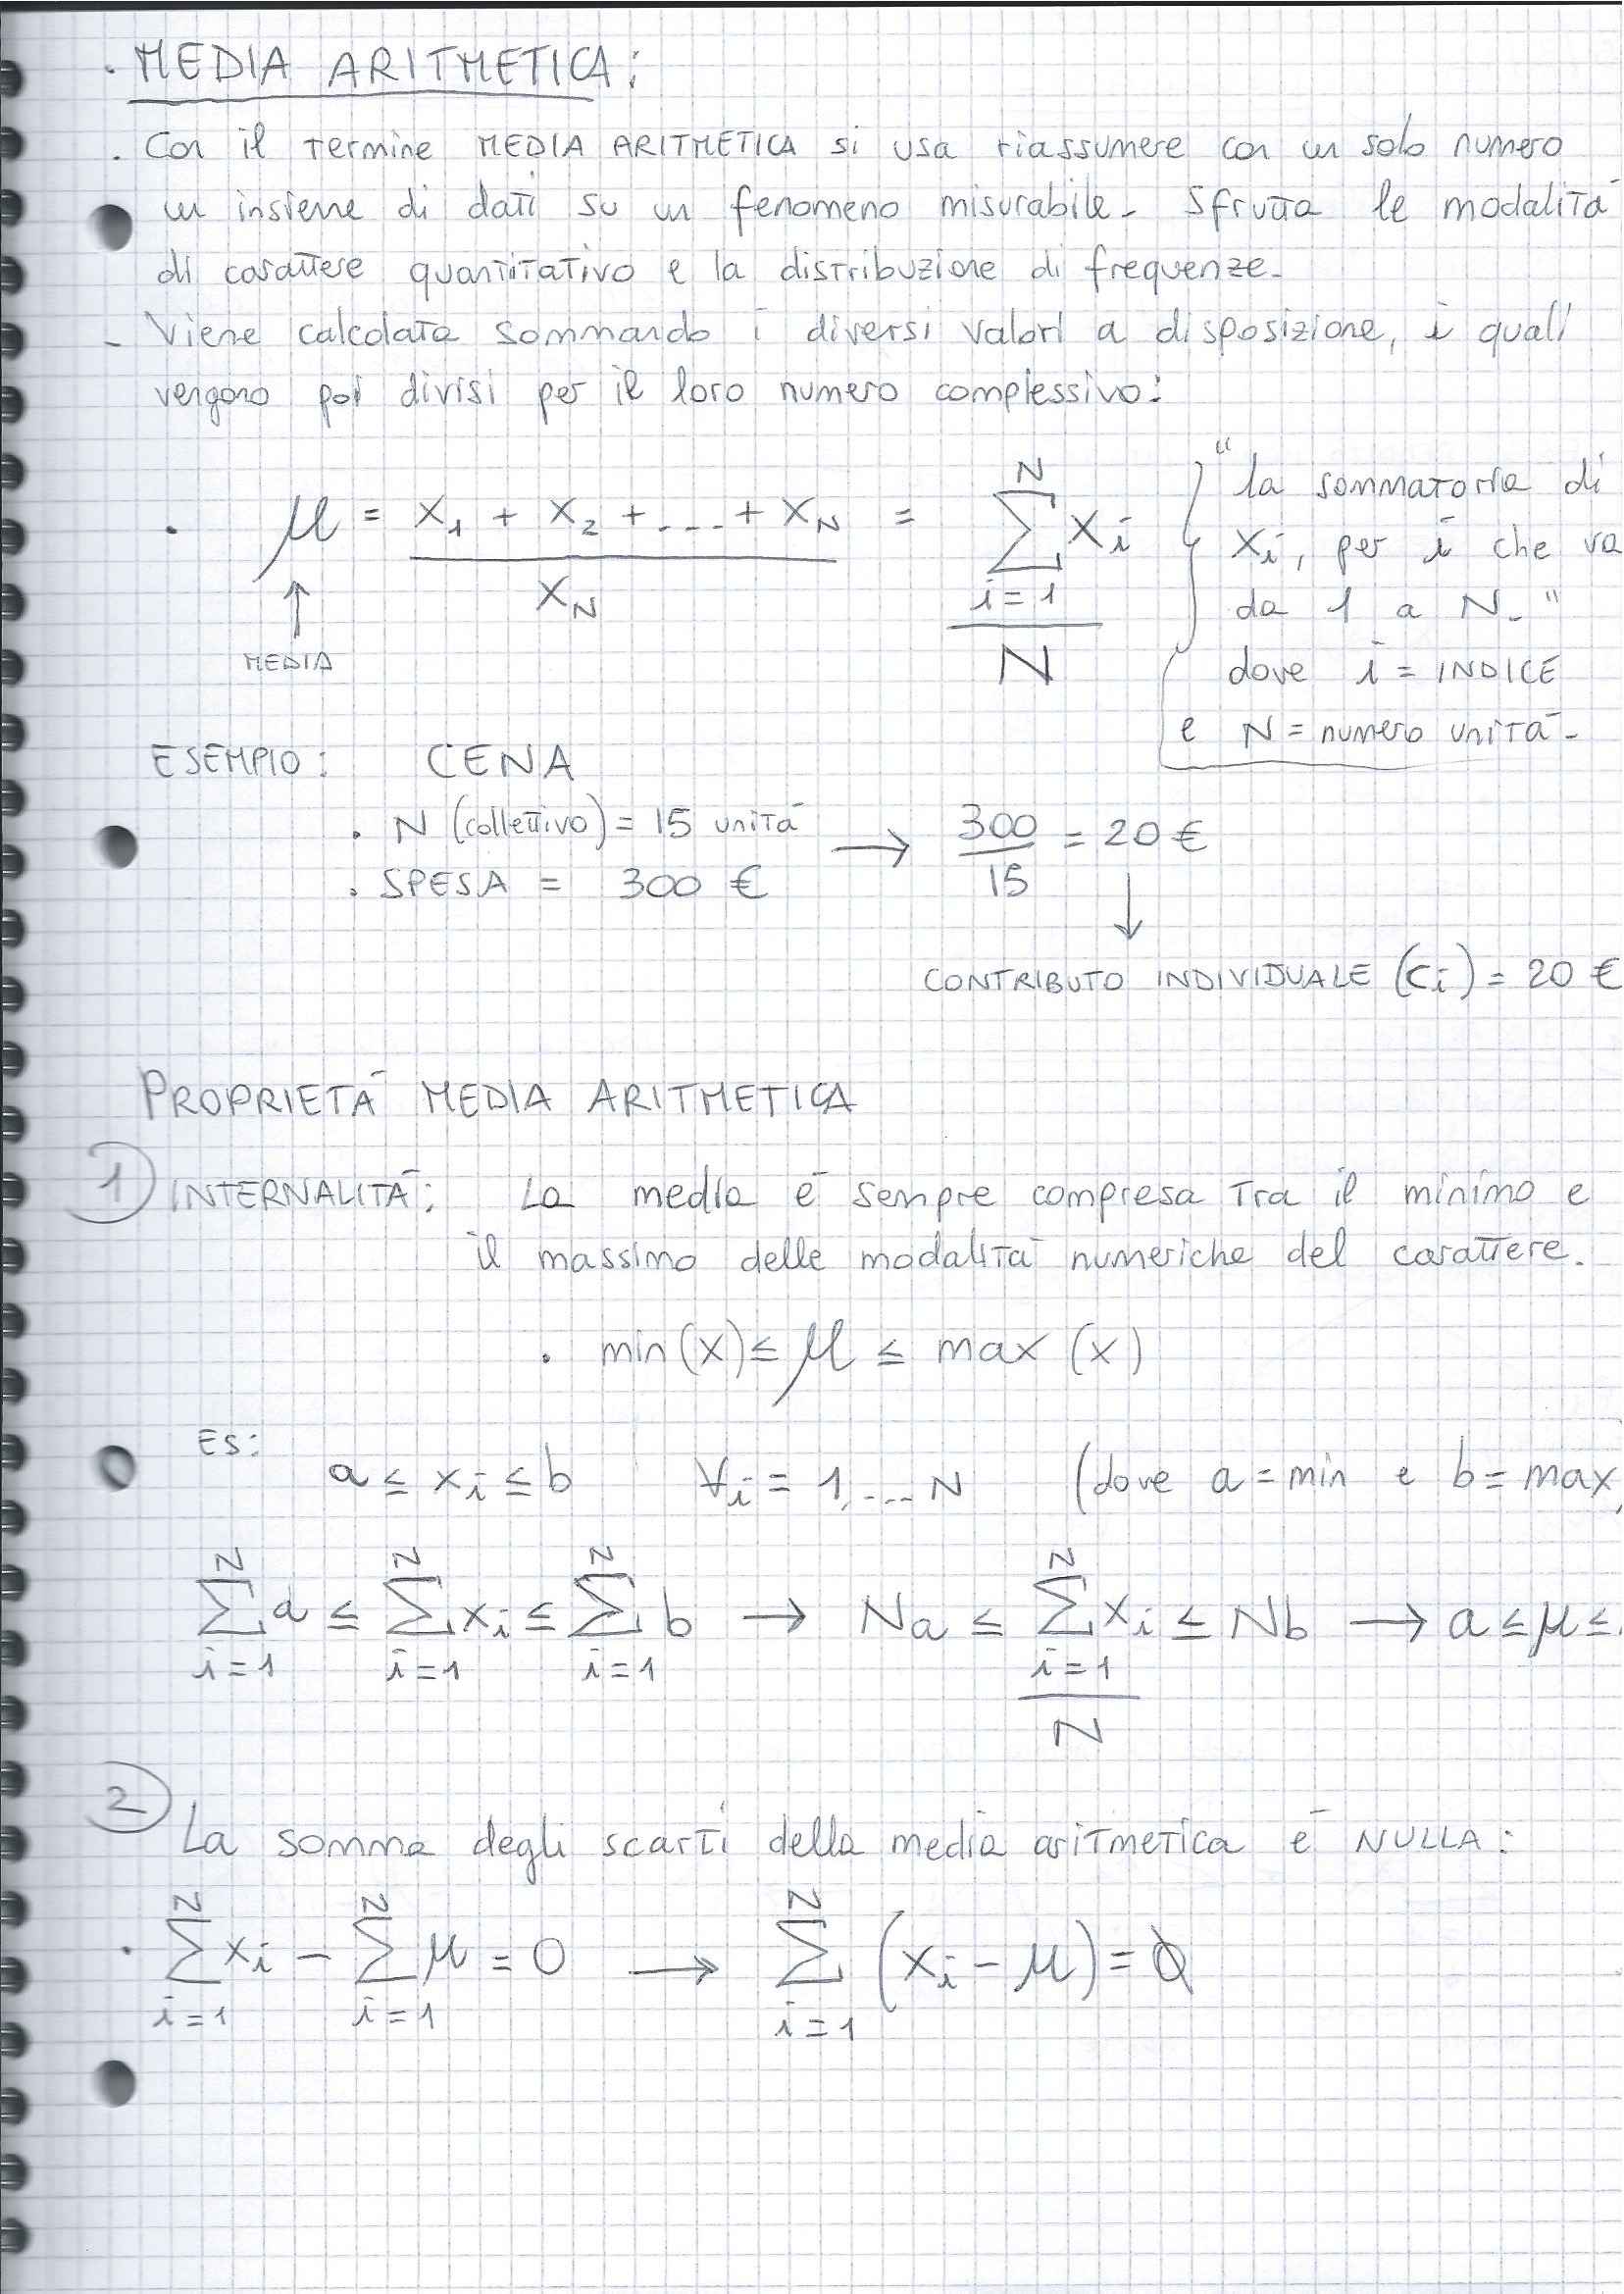 . MEDIA ARITMETICA:
. Con il termine MEDIA ARITMETICA si usa riassumere con un solo numero
un insieme di dati su un fenomeno misurabile. Sfrutta le modalità
di carattere quantitativo e la distribuzione di frequenze.
- Viene calcolata sommando i diversi valori a disposizione, i quali
vengono poi divisi per il loro numero complessivo:
. μ = (x₁ + x₂ + .... + x_N) / x_N = (∑_{i=1}^{N} x_i) / N
↑
MEDIA
"la sommatoria di
x_i, per i che va
da 1 a N."
dove i = INDICE
e N = numero unità.
ESEMPIO: CENA
. N (collettivo) = 15 unità → 300/15 = 20 €
. SPESA = 300 €
↓
CONTRIBUTO INDIVIDUALE (c_i) = 20 €
PROPRIETÀ MEDIA ARITMETICA
1) INTERNALITÀ: La media è sempre compresa tra il minimo e
il massimo delle modalità numeriche del carattere.
. min(x) ≤ μ ≤ max (x)
ES:
a ≤ x_i ≤ b ∀i = 1,.... N (dove a = min e b = max
∑_{i=1}^{N} a ≤ ∑_{i=1}^{N} x_i ≤ ∑_{i=1}^{N} b → Na ≤ (∑_{i=1}^{N} x_i) / N ≤ Nb → a ≤ μ ≤
2) La somma degli scarti della media aritmetica è NULLA:
. ∑_{i=1}^{N} x_i - ∑_{i=1}^{N} μ = 0 → ∑_{i=1}^{N} (x_i - μ) = 0